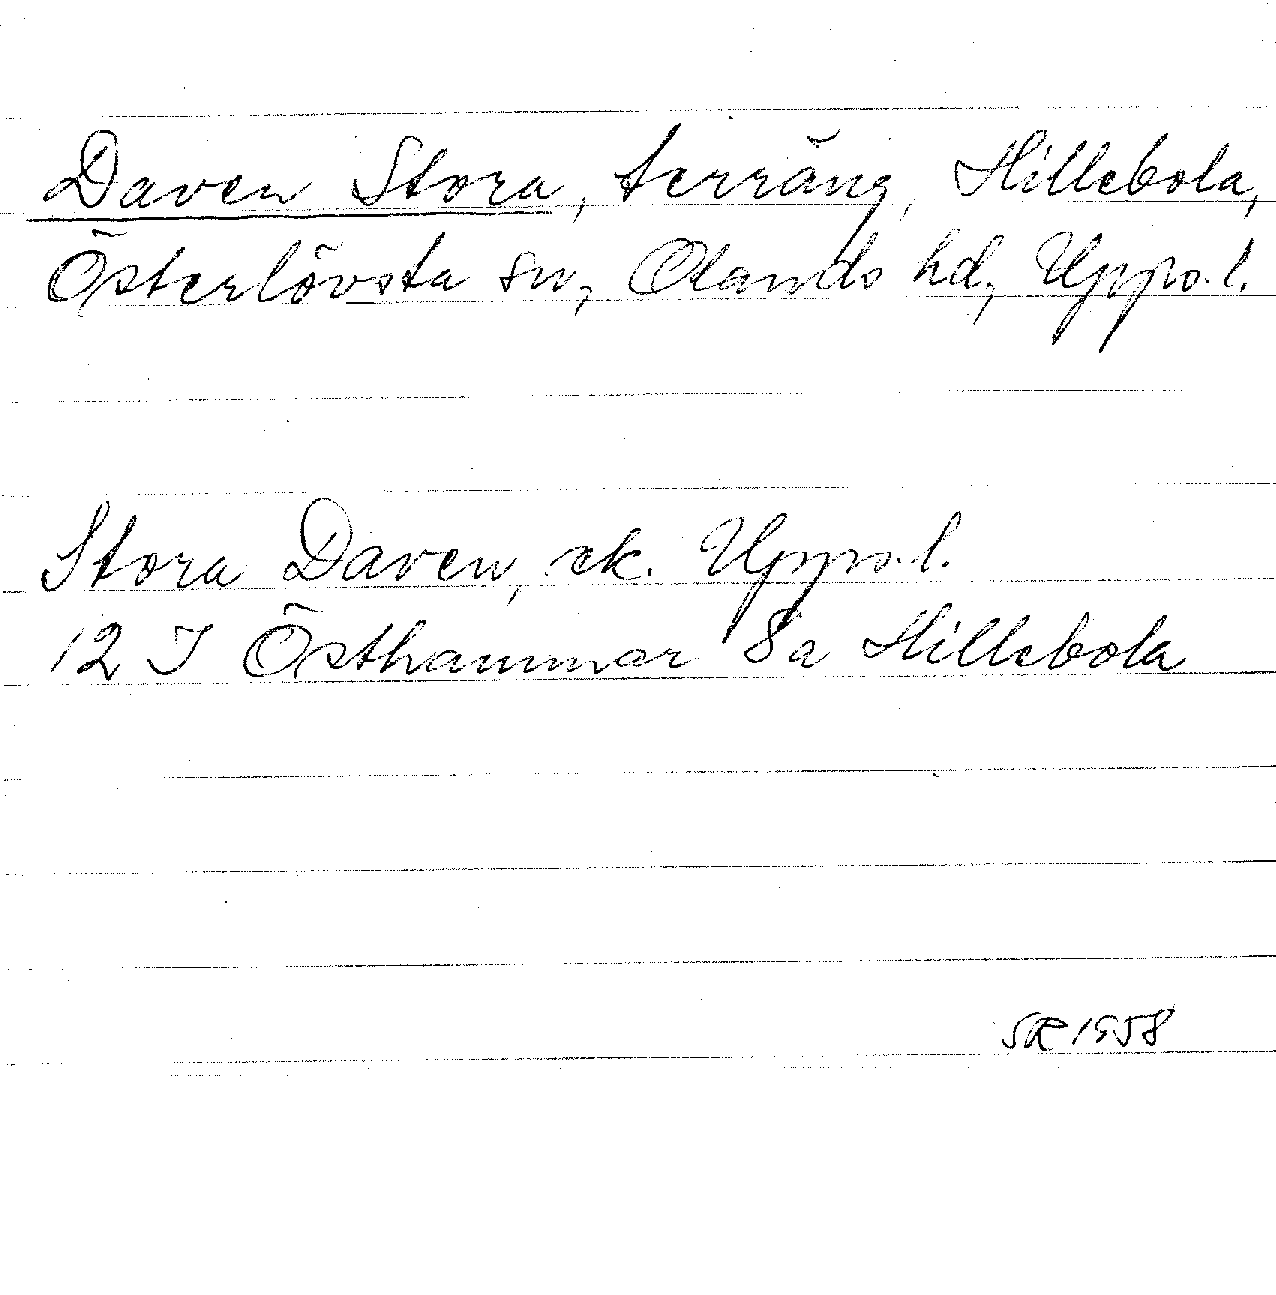 Daven Stora, terräng, Hillebola,
Österlövsta sn, Olands hd, Upps. l.
Stora Daven, ek. Upps. l.
12 I Östhammar 8a Hillebola
SR 1958